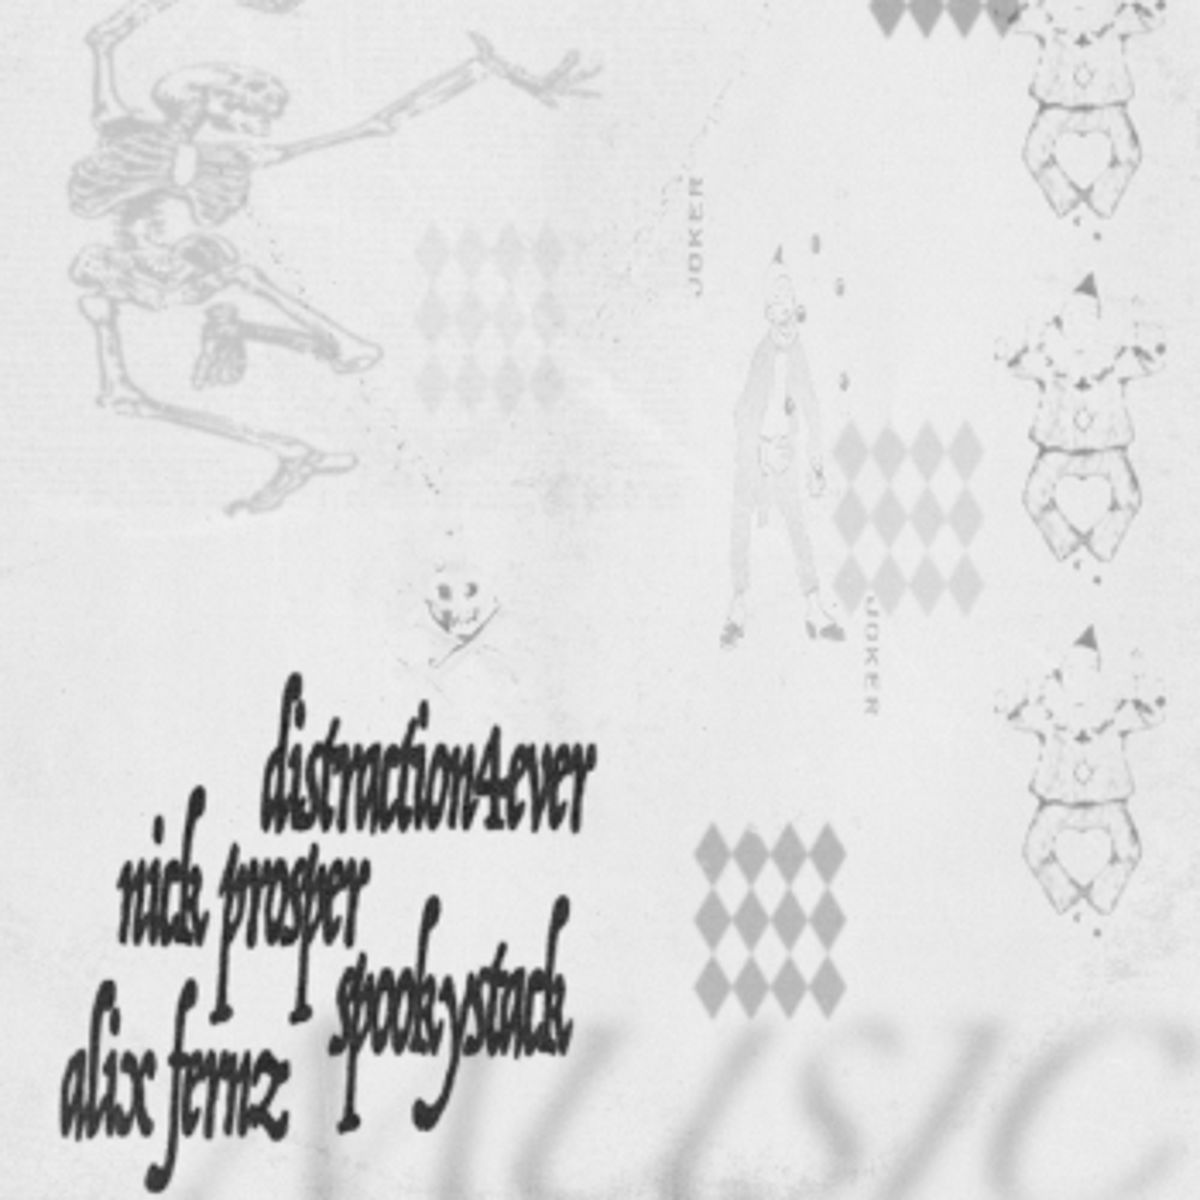 JOKER
JOKER
distraction4ever
nick prosper
spookystack
alix fernz
MUSIC